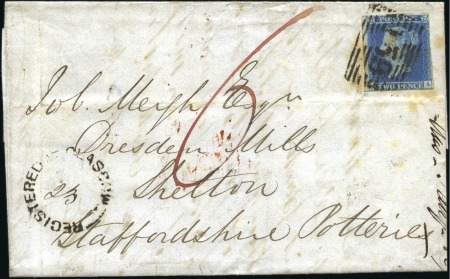 TWO PENCE
A
6
Job. Meigh Esqr
Dresden Mills
Shelton
Staffordshire Potteries
REGISTERED
23